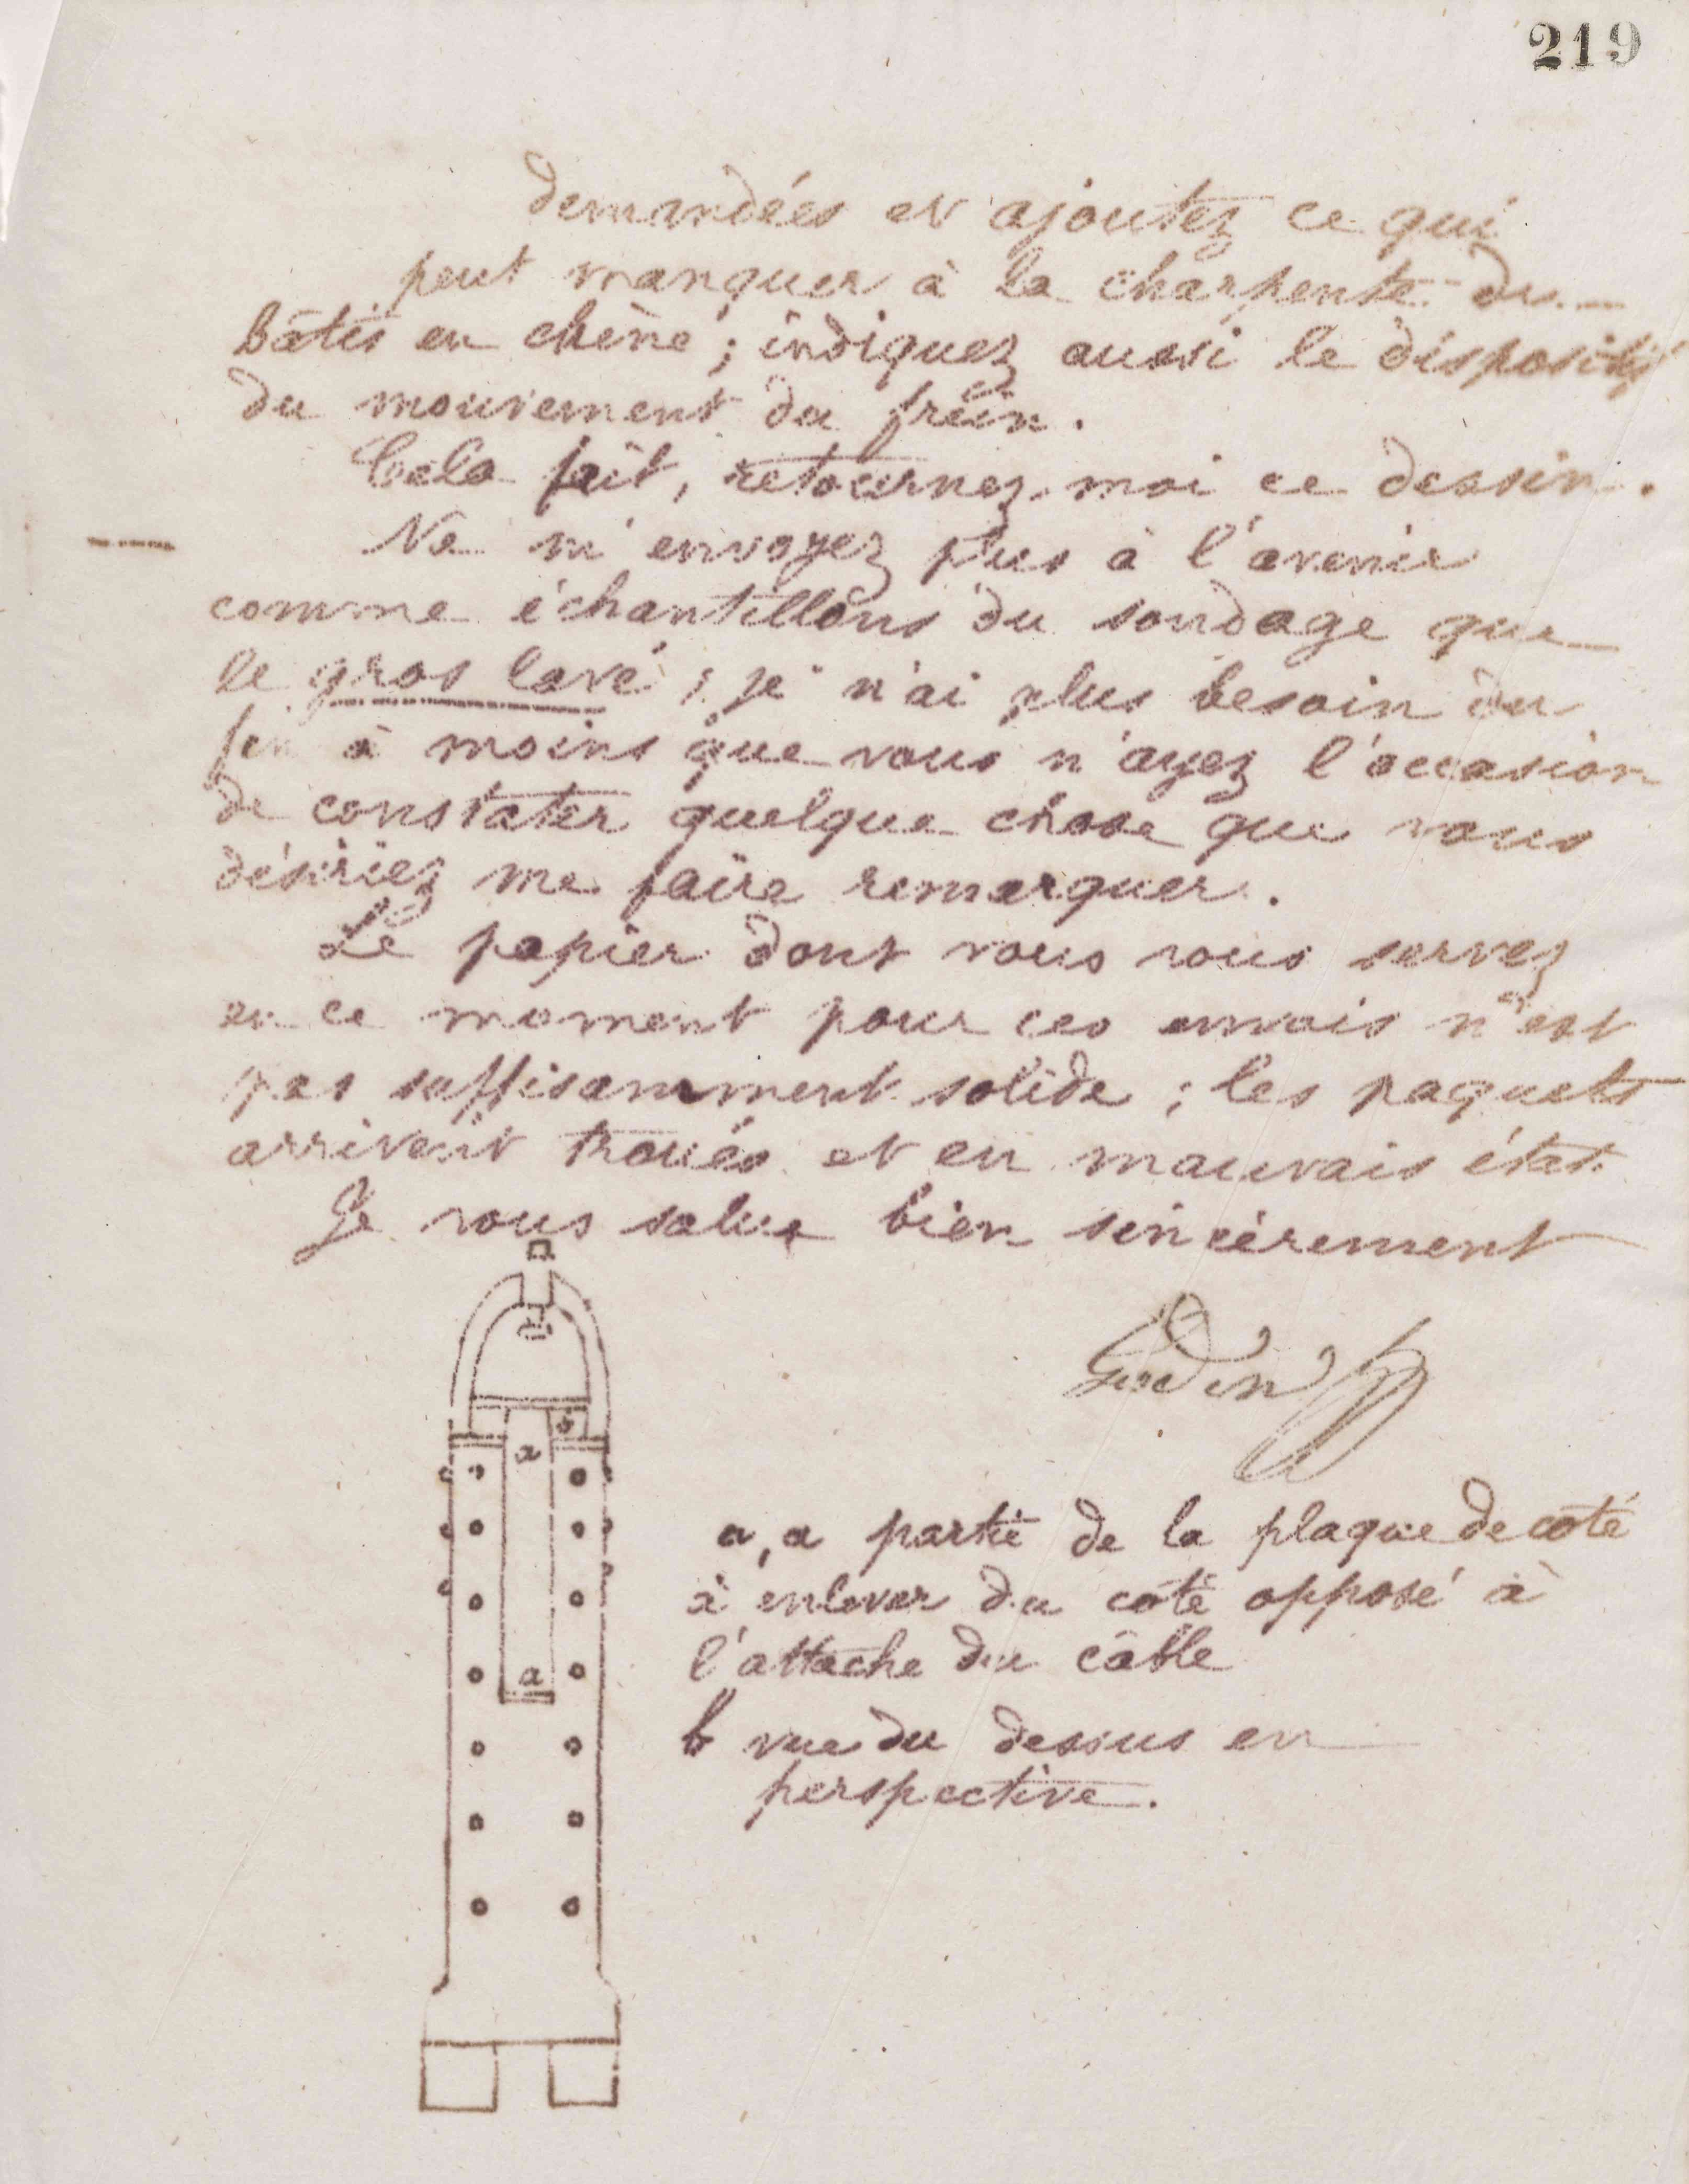 219
demandées et ajoutez ce qui
peut manquer à la charpente du
bâtis en chêne ; indiquez aussi le dispositif
du mouvement du frein.
Cela fait, retournez moi ce dessin.
Ne m'envoyez plus à l'avenir
comme échantillons du sondage que
le gros lavé ; je n'ai plus besoin du
fin à moins que vous n'ayez l'occasion
de constater quelque chose que vous
désiriez me faire remarquer.
Le papier dont vous vous servez
en ce moment pour ces envois n'est
pas suffisamment solide ; les paquets
arrivent troués et en mauvais état.
Je vous salue bien sincèrement
Godin
b
a
a
a, a partie de la plaque de coté
à enlever du coté opposé à
l'attache du câble
b vue du dessus en
perspective.